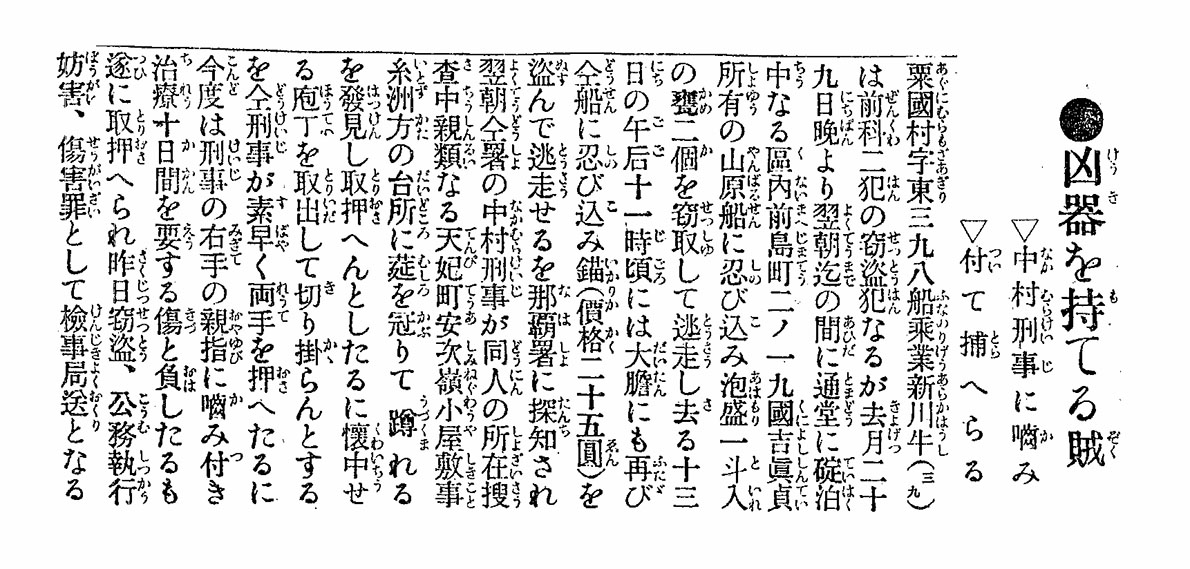 ●凶器を持てる賊
▽中村刑事に嚙み
▽付て捕へらる
粟國村字東三九八船乗業新川牛(三九)
は前科二犯の窃盗犯なるが去月二十
九日晩より翌朝迄の間に通堂に碇泊
中なる區内前島町二ノ一九國吉眞貞
所有の山原船に忍び込み泡盛一斗入
の甕二個を窃取して逃走し去る十三
日の午后十一時頃には大膽にも再び
仝船に忍び込み錨(價格二十五圓)を
盗んで逃走せるを那覇署に探知され
翌朝仝署の中村刑事が同人の所在搜
査中親類なる天妃町安次嶺小屋敷事
糸洲方の台所に莚を冠りて蹲れる
を發見し取押へんとしたるに懷中せ
る庖丁を取出して切り掛らんとする
を仝刑事が素早く両手を押へたるに
今度は刑事の右手の親指に嚙み付き
治療十日間を要する傷と負したるも
遂に取押へられ昨日窃盗、公務執行
妨害、傷害罪として檢事局送となる